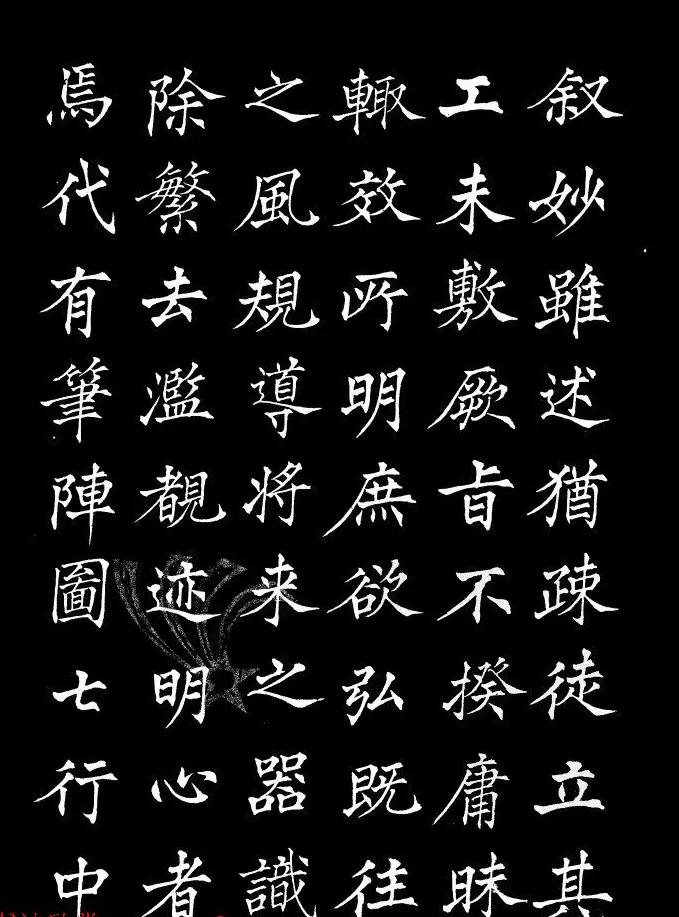 叙妙雖述猶疎徒立其
工未敷厥旨不揆庸昧
輙效所明庶欲弘既往
之風規導將来之器識
除繁去濫覩迹明心者
焉代有筆陣圖七行中